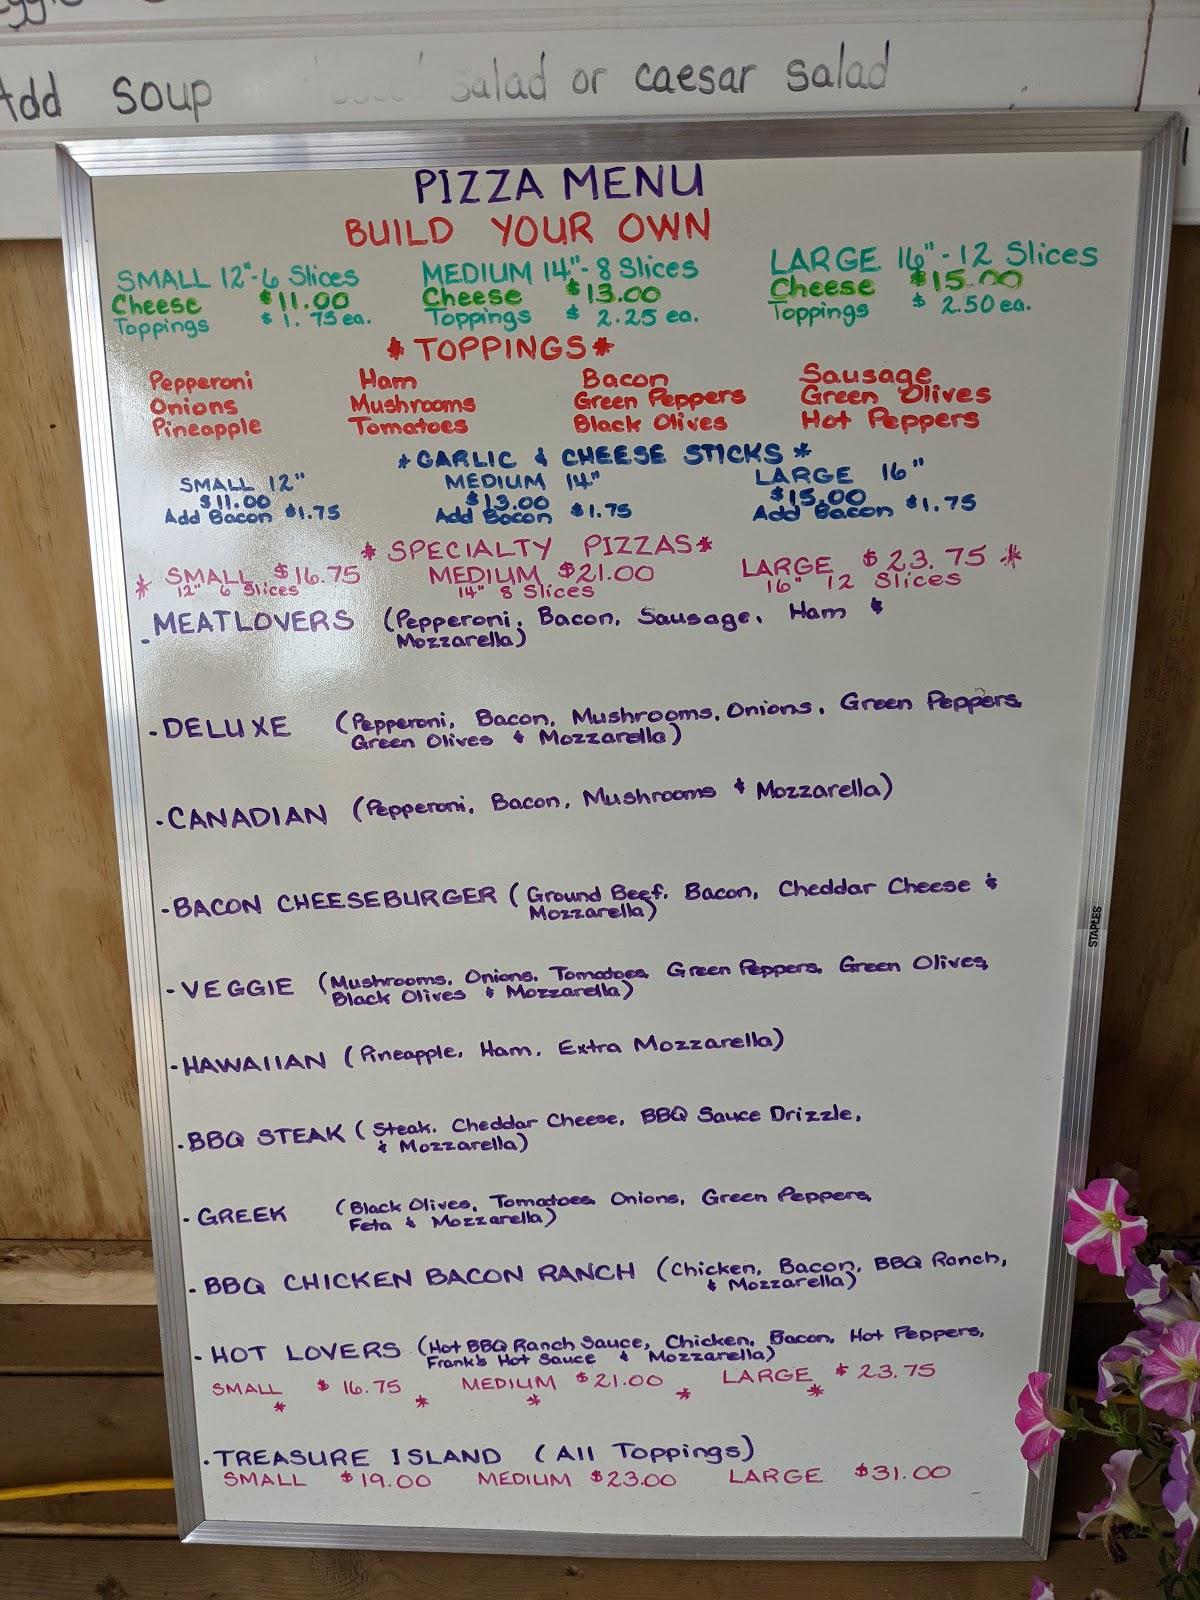 Add soup salad or caesar salad
PIZZA MENU
BUILD YOUR OWN
SMALL 12"-6 Slices MEDIUM 14"-8 Slices LARGE 16"-12 Slices
Cheese $11.00 Cheese $13.00 Cheese $15.00
Toppings $1.75 ea. Toppings $ 2.25 ea. Toppings $ 2.50 ea.
* TOPPINGS *
Pepperoni Ham Bacon Sausage
Onions Mushrooms Green Peppers Green Olives
Pineapple Tomatoes Black Olives Hot Peppers
* GARLIC & CHEESE STICKS *
SMALL 12" MEDIUM 14" LARGE 16"
$11.00 $13.00 $15.00
Add Bacon $1.75 Add Bacon $1.75 Add Bacon $1.75
* SPECIALTY PIZZAS *
* SMALL $16.75 MEDIUM $21.00 LARGE $23.75 *
12" 6 Slices 14" 8 Slices 16" 12 Slices
. MEATLOVERS (Pepperoni, Bacon, Sausage, Ham &
Mozzarella)
. DELUXE (Pepperoni, Bacon, Mushrooms, Onions, Green Peppers,
Green Olives & Mozzarella)
. CANADIAN (Pepperoni, Bacon, Mushrooms & Mozzarella)
. BACON CHEESEBURGER (Ground Beef, Bacon, Cheddar Cheese &
Mozzarella)
. VEGGIE (Mushrooms, Onions, Tomatoes, Green Peppers, Green Olives,
Black Olives & Mozzarella)
. HAWAIIAN (Pineapple, Ham, Extra Mozzarella)
. BBQ STEAK (Steak, Cheddar Cheese, BBQ Sauce Drizzle,
& Mozzarella)
. GREEK (Black Olives, Tomatoes, Onions, Green Peppers,
Feta & Mozzarella)
. BBQ CHICKEN BACON RANCH (Chicken, Bacon, BBQ Ranch,
& Mozzarella)
. HOT LOVERS (Hot BBQ Ranch Sauce, Chicken, Bacon, Hot Peppers,
Frank's Hot Sauce & Mozzarella)
SMALL $ 16.75 MEDIUM $21.00 LARGE $ 23.75
* * * * *
. TREASURE ISLAND (All Toppings)
SMALL $19.00 MEDIUM $23.00 LARGE $31.00
STAPLES